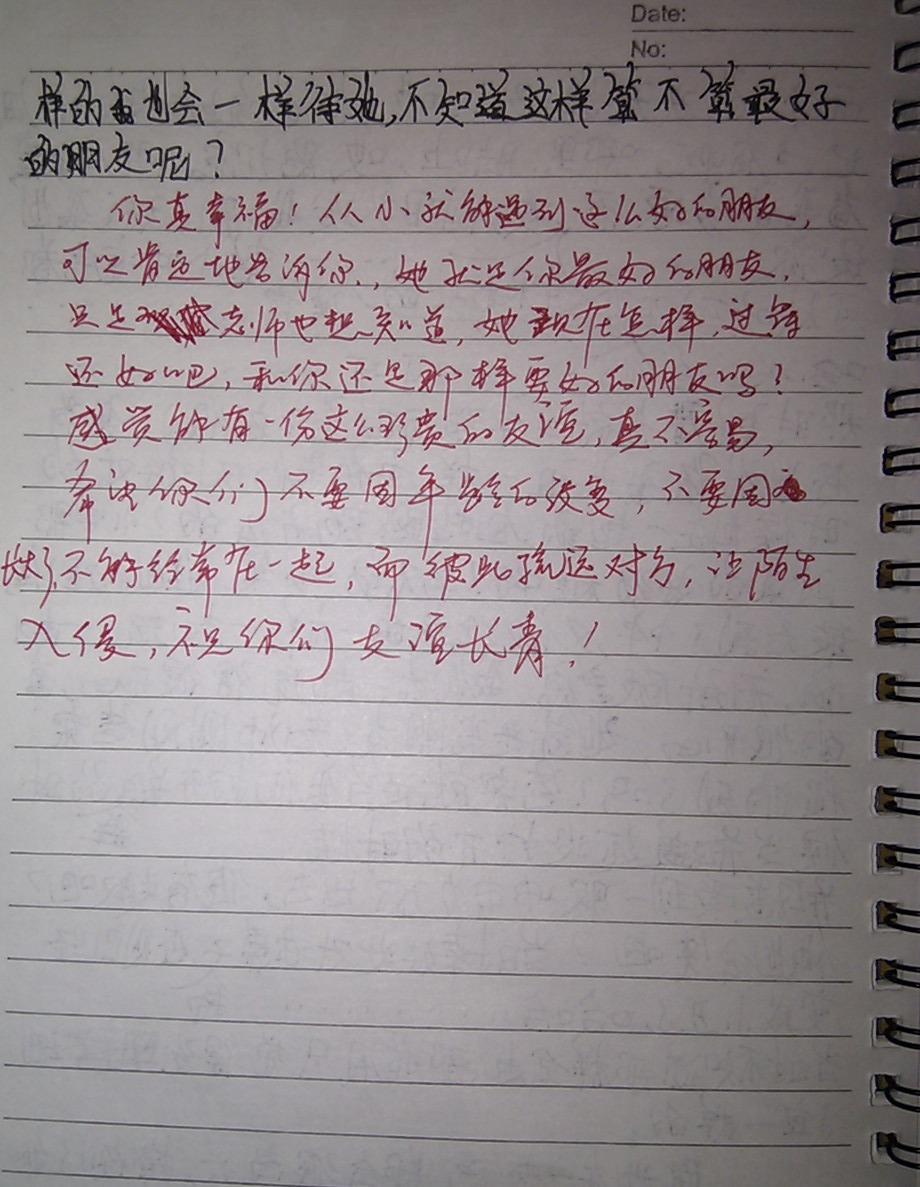 Date:
No:
样的我也会一样待她,不知道这样算不算最好
的朋友呢?
你真幸福!从小就能遇到这么好的朋友,
可以肯定地告诉你,她就是你最好的朋友,
只是老师也想知道,她现在怎样,过得
还好吧,和你还是那样要好的朋友吗?
感觉能有一份这么珍贵的友谊,真不容易,
希望你们不要因年龄的改变,不要因
不能经常在一起,而彼此疏远对方,让陌生
入侵,祝你们友谊长青!